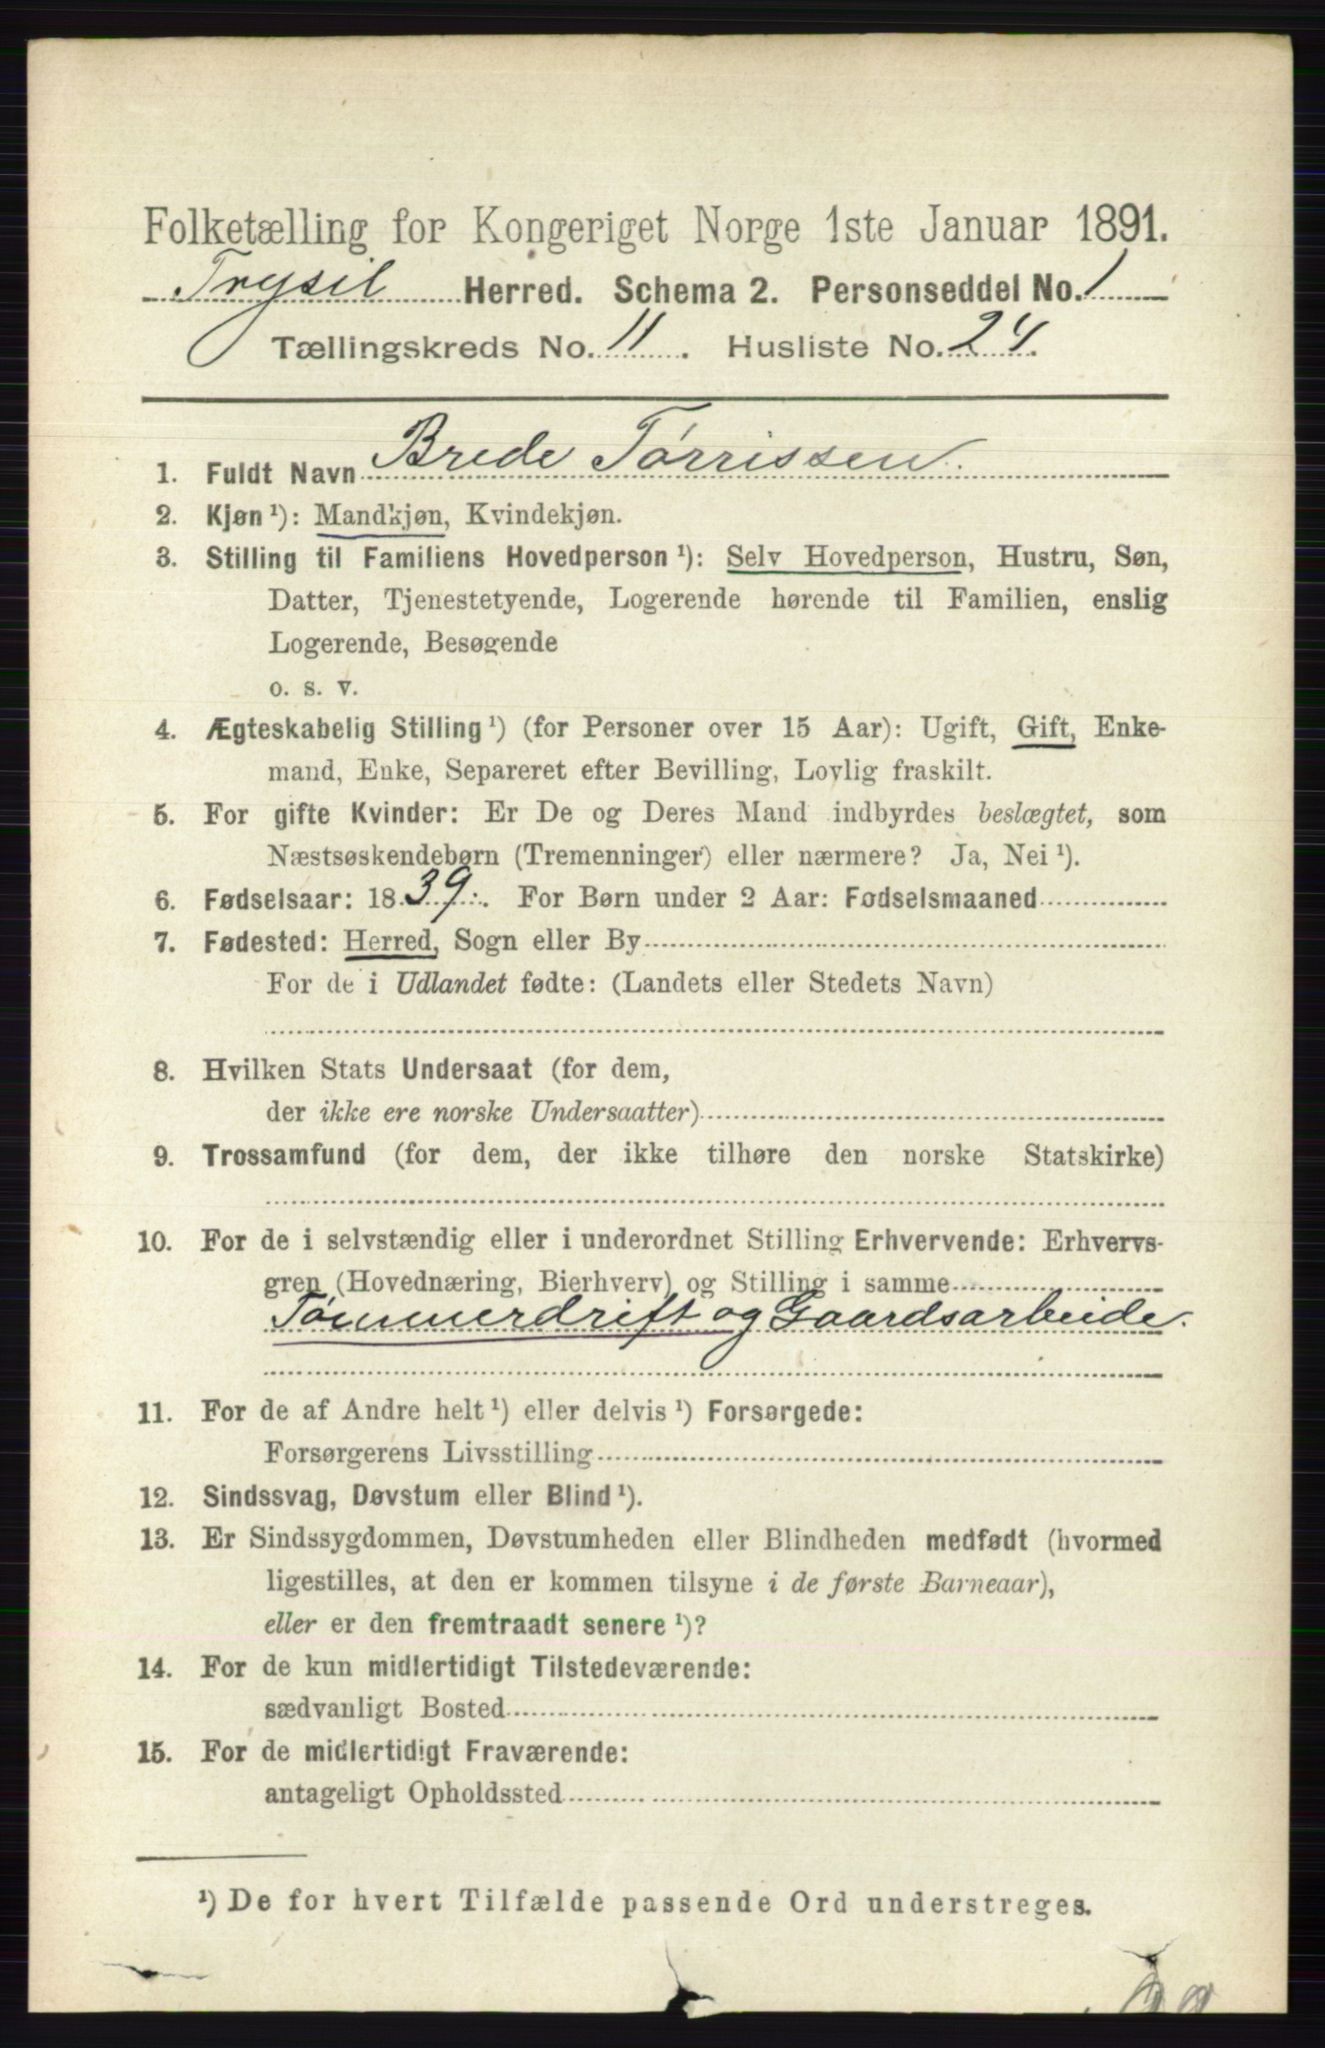 Folketælling for Kongeriget Norge 1ste Januar 1891.
Trysil Herred. Schema 2. Personseddel No. 1
Tællingskreds No. 11. Husliste No. 24.
1. Fuldt Navn Brede Tørrissen.
2. Kjøn ¹): Mandkjøn, Kvindekjøn.
3. Stilling til Familiens Hovedperson ¹): Selv Hovedperson, Hustru, Søn,
Datter, Tjenestetyende, Logerende hørende til Familien, enslig
Logerende, Besøgende
o. s. v.
4. Ægteskabelig Stilling ¹) (for Personer over 15 Aar): Ugift, Gift, Enke-
mand, Enke, Separeret efter Bevilling, Lovlig fraskilt.
5. For gifte Kvinder: Er De og Deres Mand indbyrdes beslægtet, som
Næstsøskendebørn (Tremenninger) eller nærmere? Ja, Nei ¹).
6. Fødselsaar: 1839. For Børn under 2 Aar: Fødselsmaaned
7. Fødested: Herred, Sogn eller By
For de i Udlandet fødte: (Landets eller Stedets Navn)
8. Hvilken Stats Undersaat (for dem,
der ikke ere norske Undersaatter)
9. Trossamfund (for dem, der ikke tilhøre den norske Statskirke)
10. For de i selvstændig eller i underordnet Stilling Erhvervende: Erhvervs-
gren (Hovednæring, Bierhverv) og Stilling i samme
Tømmerdrift og Gaardsarbeide.
11. For de af Andre helt ¹) eller delvis ¹) Forsørgede:
Forsørgerens Livsstilling
12. Sindssvag, Døvstum eller Blind ¹).
13. Er Sindssygdommen, Døvstumheden eller Blindheden medfødt (hvormed
ligestilles, at den er kommen tilsyne i de første Barneaar),
eller er den fremtraadt senere ¹)?
14. For de kun midlertidigt Tilstedeværende:
sædvanligt Bosted
15. For de midlertidigt Fraværende:
antageligt Opholdssted
¹) De for hvert Tilfælde passende Ord understreges.